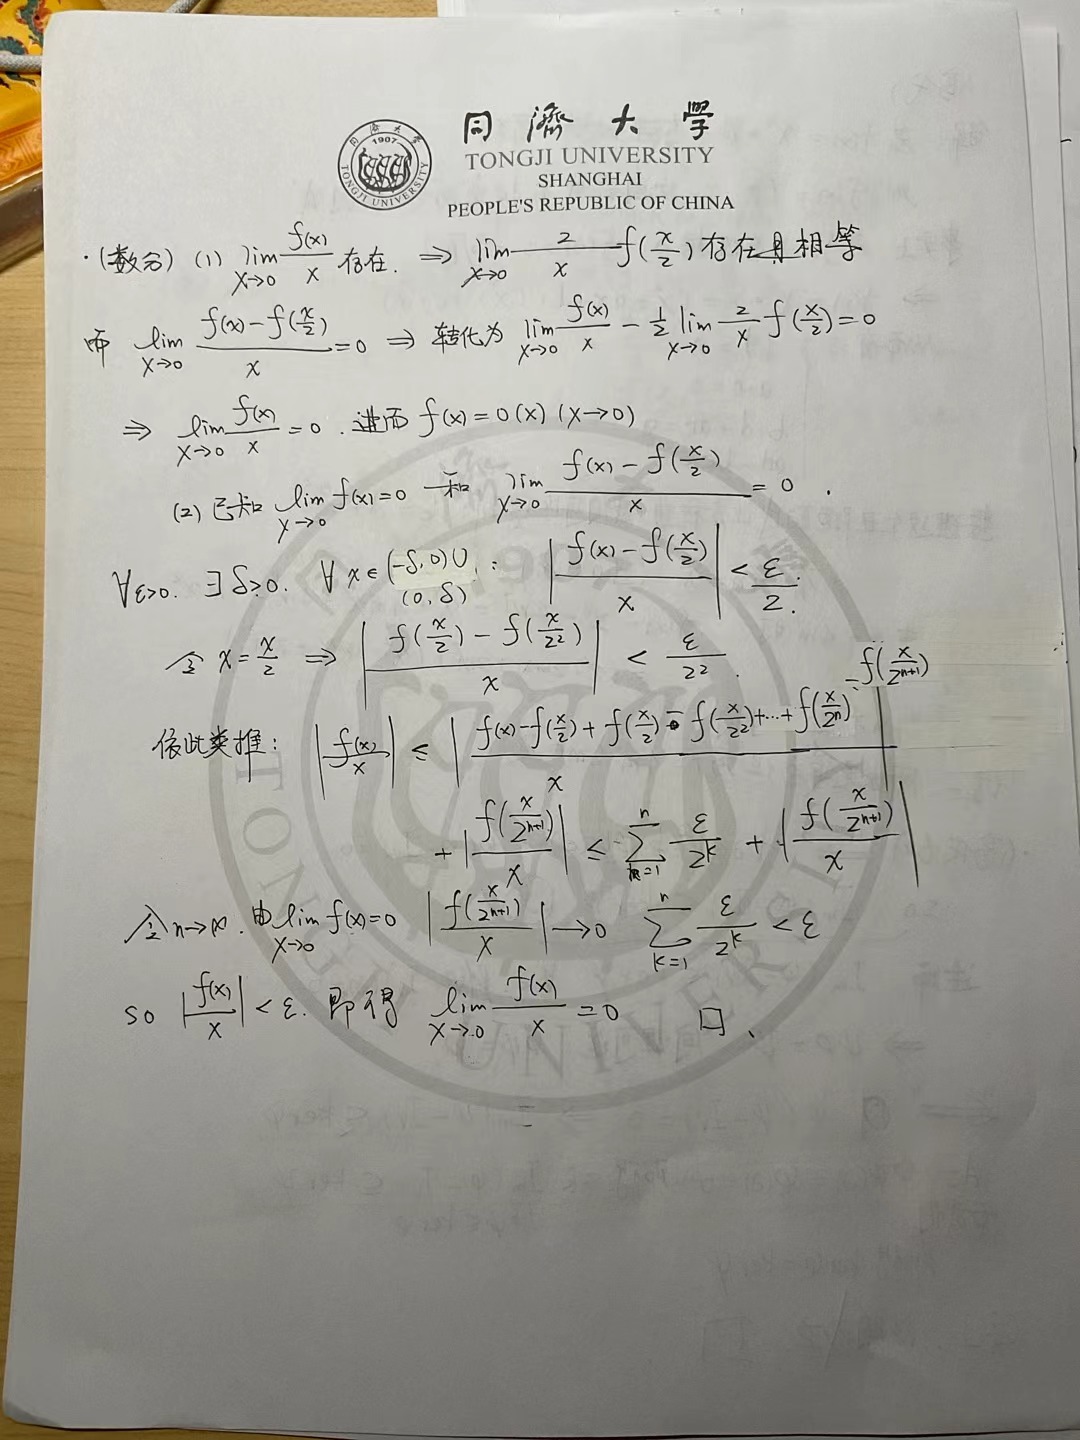 同濟大學
TONGJI UNIVERSITY
SHANGHAI
PEOPLE'S REPUBLIC OF CHINA
同濟大學
1907
TONGJI UNIVERSITY
·(数分) (1) lim_{x→0} f(x)/x 存在. ⇒ lim_{x→0} 2/x f(x/2) 存在且相等
而 lim_{x→0} (f(x)-f(x/2))/x = 0 ⇒ 转化为 lim_{x→0} f(x)/x - 1/2 lim_{x→0} 2/x f(x/2) = 0
⇒ lim_{x→0} f(x)/x = 0. 进而 f(x)=o(x) (x→0)
(2) 已知 lim_{x→0} f(x)=0 和 lim_{x→0} (f(x)-f(x/2))/x = 0.
∀ε>0. ∃δ>0. ∀x∈(-δ,0)∪(0,δ): |(f(x)-f(x/2))/x| < ε/2.
令 x=x/2 ⇒ |(f(x/2)-f(x/2²))/x| < ε/2².
依此类推: |f(x)/x| ≤ |(f(x)-f(x/2)+f(x/2)-f(x/2²)+…+f(x/2ⁿ)-f(x/2ⁿ⁺¹))/x|
+|f(x/2ⁿ⁺¹)/x| ≤ Σ_{k=1}^{n} ε/2ᵏ + |f(x/2ⁿ⁺¹)/x|
令n→∞. 由 lim_{x→0} f(x)=0 |f(x/2ⁿ⁺¹)/x| →0 Σ_{k=1}^{n} ε/2ᵏ < ε
so |f(x)/x| < ε. 即得 lim_{x→0} f(x)/x = 0 □.
TONGJI UNIVERSITY